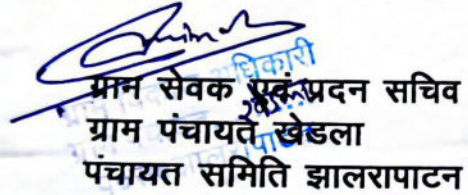 ग्रान सेवक एवं प्रदन सचिव
ग्राम पंचायत खेडला
पंचायत समिति झालरापाटन